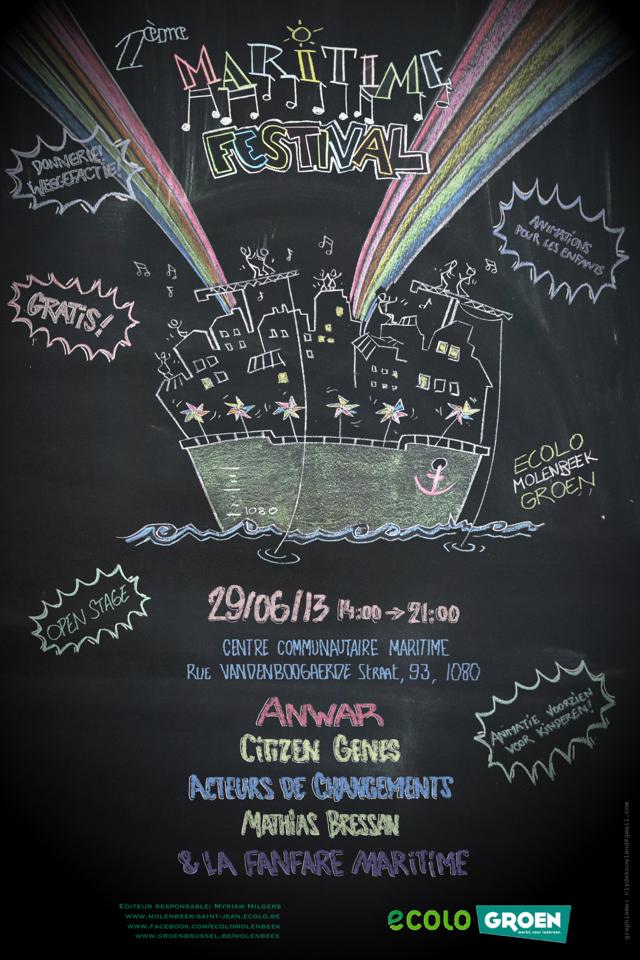 2ème
MARITIME
FESTIVAL
DONNERIE!
WEGGEEFACTIE!
ANIMATIONS
POUR LES ENFANTS
GRATIS!
ECOLO
MOLENBEEK
GROEN
1080
OPEN STAGE
29/06/13 14:00 → 21:00
CENTRE COMMUNAUTAIRE MARITIME
RUE VANDENBOOGAERDE STRAAT, 93, 1080
ANIMATIE VOORZIEN
VOOR KINDEREN!
ANWAR
CITIZEN GENES
ACTEURS DE CHANGEMENTS
MATHIAS BRESSAN
& LA FANFARE MARITIME
EDITEUR RESPONSABLE: MYRIAM HILGERS
WWW.MOLENBEEK-SAINT-JEAN.ECOLO.BE
WWW.FACEBOOK.COM/ECOLOMOLENBEEK
WWW.GROENBRUSSEL.BE/MOLENBEEK
ecolo
GROEN
werkt voor iedereen